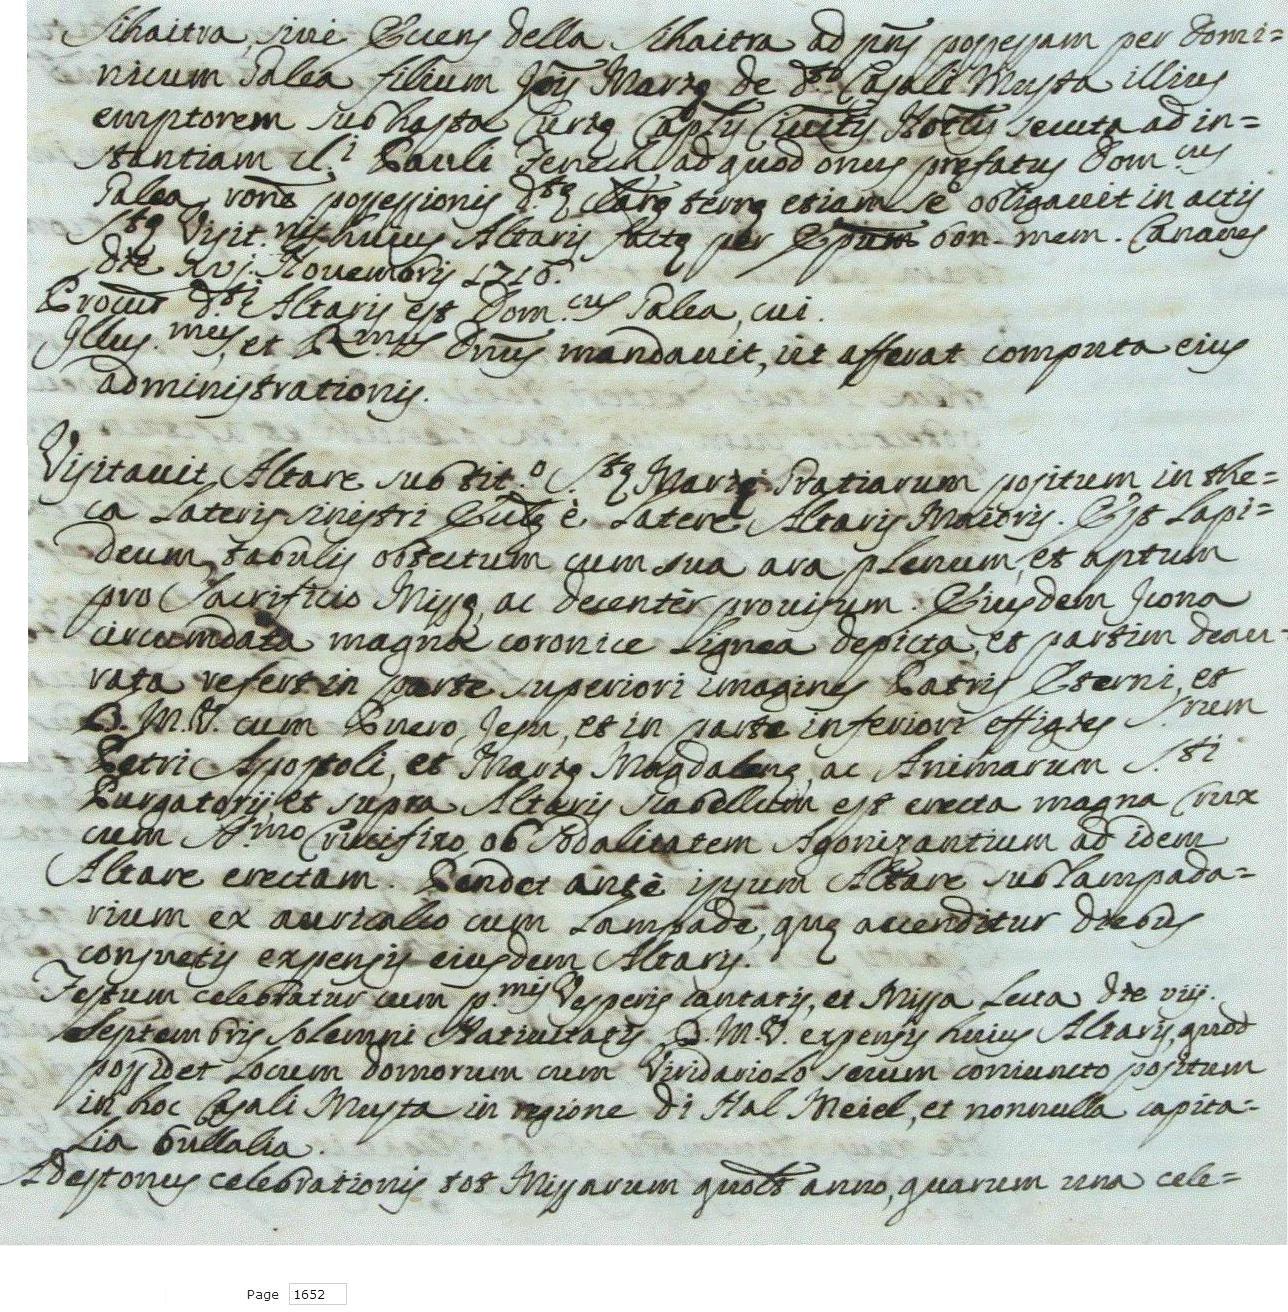 Schaitra, sive Ecuens della Schaitra ad pñs possessam per Domi=
nicum Palea filium Jois Mariæ de d.to Casali Musta illius
emptorem subhasta Curiæ Capls Civitis Notlis secuta ad in=
stantiam cl.i Pauli Zerech, ad quod onus prefatus Dom.cus
Palea, rone possessionis d.tæ terræ etiam se obligavit in actis
S.tæ Visit.nis huius Altaris factæ per Epum bon. mem. Canaves
die xvj. Novembris 1716.
Procur d.ti Altaris est Dom.cus Palea, cui.
Illus.mus, et R.mus Dnus mandavit, ut afferat computa eius
administrationis.
Visitavit Altare sub tit.o S.tæ Mariæ Gratiarum positum in the=
ca Lateris sinistri Eccliæ è Latere Altaris Maioris. Est Lapi=
deum tabulis obtectum cum sua ara plenum, et aptum
pro Sacrificio Missæ, ac decentèr provisum. Eiusdem Icona
circumdata magna coronice Lignea depicta, et partim deau=
rata refert in parte superiori imagines Patris Eterni, et
B. M. V. cum Puero Jesu, et in parte inferiori effigies S.rum
Petri Apostoli, et Mariæ Magdalenæ, ac Animarum S.ti
Purgatorij, et supra Altaris scabellum est erecta magna Crux
cum S.mo Crucifixo ob Sodalitatem Agonizantium ad idem
Altare erectam. Pendet antè ipsum Altare sublampada=
rium ex auricalco cum Lampade, quæ accenditur diebus
consuetis expensis eiusdem Altaris.
Festum celebratur cum p.mis Vesperis cantatis, et Missa Lecta die viij.
Septembris solemni Nativitatis B. M. V. expensis huius Altaris, quod
possidet Locum domorum cum Viridariolo secum coniuncto positum
in hoc Casali Musta in regione di Hal Meiel, et nonnulla capita=
Lia bullalia.
Adest onus celebrationis tot Missarum quolt anno, quarum una cele=
Page 1652